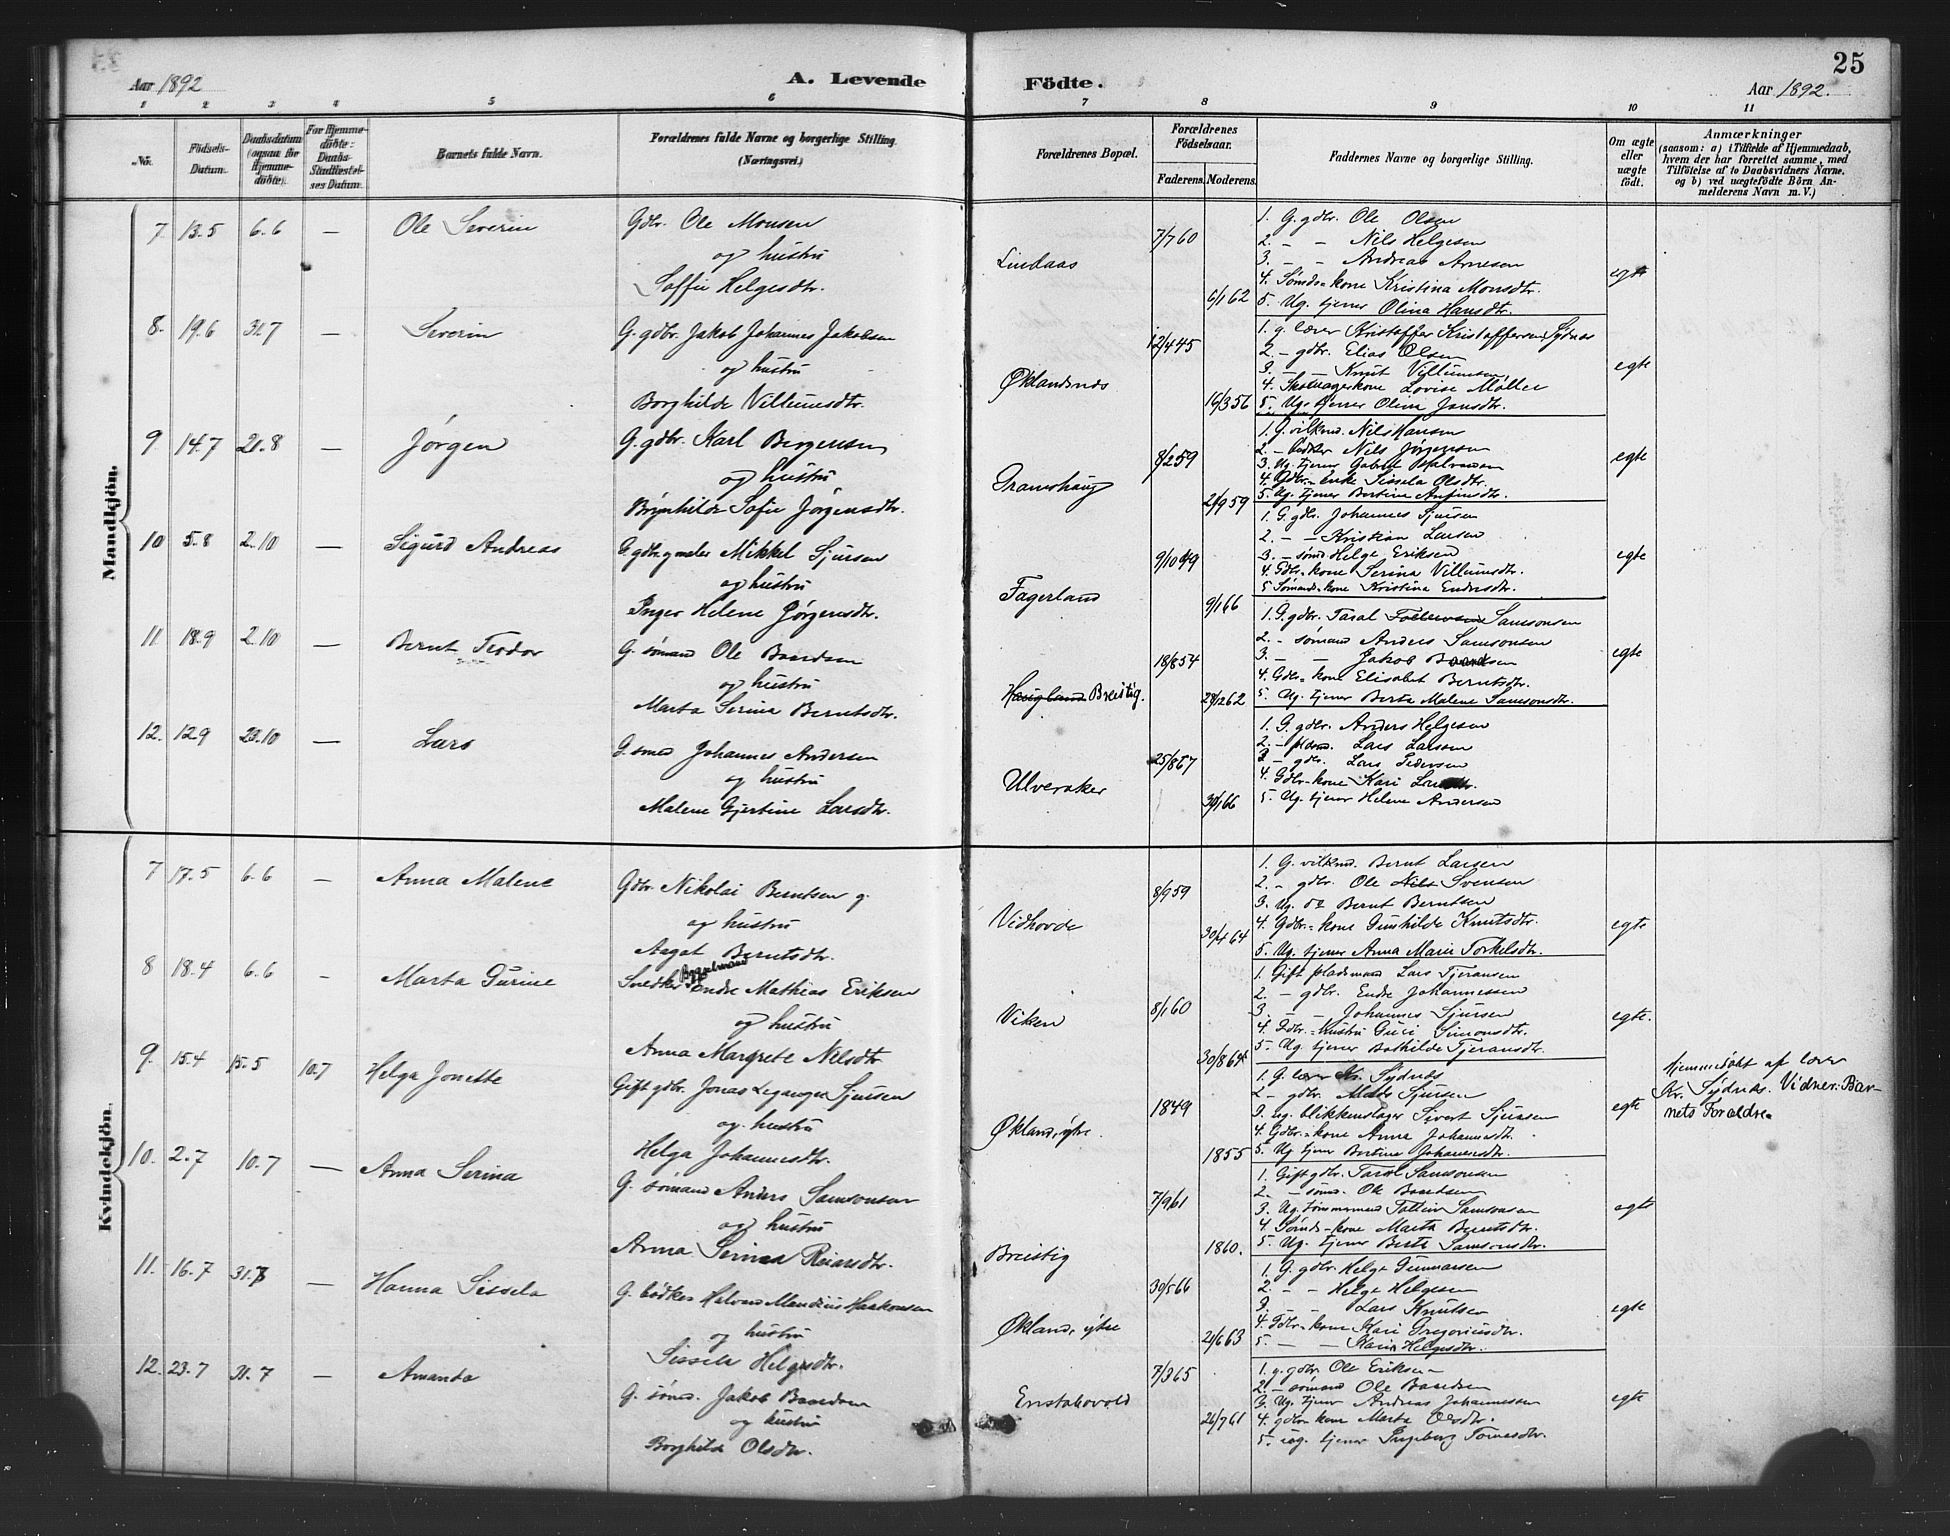 25
Aar 1892
A. Levende
Födte.
Aar 1892.
1 2 3 4 5 6 7 8 9 10 11
No.
Födsels-Datum.
Daabsdatum (ogsaa for Hjemmedöbte).
For Hjemmedöbte: Daabs-Stadfæstelses Datum.
Barnets fulde Navn.
Forældrenes fulde Navne og borgerlige Stilling.
(Næringsvei.)
Forældrenes Bopæl.
Forældrenes Födselsaar.
Faderens. Moderens.
Faddernes Navne og borgerlige Stilling.
Om ægte eller uægte födt.
Anmærkninger
(saasom: a) i Tilfælde af Hjemmedaab,
hvem der har forrettet samme, med
Tilföielse af to Daabsvidners Navne,
og b) ved uægtefödte Börn An-
melderens Navn m. V.)
Mandkjön.
7. 13.5 6.6 — Ole Severin
Gdbr. Ole Monsen
og hustru
Soffie Helgesdtr.
Lindaas
7/7 60
6/1 62
1. G. gdbr. Ole Olsen
2. — — Nils Helgesen
3. — — Andreas Arnesen
4. Sømds-kone Kristina Monsdtr.
5. Ug. tjener Olina Hansdtr.
egte
8. 19.6 31.7 — Severin
G. gdbr. Jakob Johannes Jakobsen
og hustru
Borghilde Villumsdtr.
Øklandsnes
12/4 45
16/3 56
1. g. lærer Kristoffer Kristoffersen Sydnes
2. — gdbr. Elias Olsen
3. — — Knut Villumsen
4. Skomagerkone Lovise Møller
5. Ug. tjener Olina Jansdtr.
egte
9 14.7 21.8 — Jørgen
G. gdbr. Karl Birgersen
og hustru
Brynhilde Sofie Jørgensdtr.
8/2 59
21/9 59
1. G. vilkmd. Nils Hansen
2. — bødker Nils Jørgensen
3. Ug. tjener
4. Gdbr. enke Sissela Olsdtr.
5. Ug. tjener Bertine
egte
10 5.8 2.10 — Sigurd Andreas
G. gdbr. g maler Mikkel Sjursen
og hustru
Inger Helene Jørgensdtr.
Fagerland
9/10 49
9/1 66
1. G. gdbr. Johannes Sjursen
2. — — Kristian Larsen
3. — sømd Helge Eriksen
4. Gdbr-kone Serina Villumsdtr.
5 Sømands-kone Kristina Endresdtr.
egte
11. 18.9 2.10 — Bernt Teodor
G. sømand Ole Baardsen
og hustru
Marta Serina Berntsdtr.
Haugland Breistig.
18/8 54
28/12 62
1. G. gdbr. Taral Samsonsen
2. — sømand Anders Samsonsen
3. — — Jakob Baardsen
4. Gdbr-kone Elisabet Berntsdtr.
5. Ug. tjener Berta Malene Samsonsdtr.
egte
12. 12.9 23.10 — Lars
G. sømd Johannes Andersen
og hustru
Malene Gjertine Larsdtr.
Ulveraker
25/8 67
30/1 66
1. G. gdbr. Anders Helgesen
2. — pladsmd. Lars Larsen
3 — gdbr. Lars Pedersen
4. Gdbr-kone Kari
5. Ug. tjener Helene Andersen
Kvindekjön.
7 17.5 6.6 — Anna Malene
Gdbr. Nikolai Berntsen g.
og hustru
Aagat Berntsdtr.
Vidhovde
8/9 59
30/4 64
1. G. vilkmd. Bernt Larsen
2. — gdbr. Ole Nils Svensen
3. Ug. do Bernt Berntsen
4. Gdbr.-kone Gunhilde Knutsdtr.
5. Ug. tjener Anna Marie Torkelsdtr.
egte
8 18.4 6.6 — Marta Gurine
Snedker Endre Mathias Eriksen
og hustru
Anna Margrete Nilsdtr.
Viken
8/1 60
30/8 64
1. Gift pladsmand Lars Tjeransen
2. — gdbr. Endre Johannessen
3. — — Johannes Sjursen
4. Gdbr.-hustru Guri Simonsdtr.
5. Ug. tjener Bothilde Tjeransdtr.
egte.
9. 15.4 15.5 10.7 Helga Jonette
Gift gdbr. Jonas Leganger Sjursen
og hustru
Helga Johannesdtr.
Økland, ytre.
1849
1855
1. G. lærer Kr. Sydnes
2 — gdbr. Mads Sjursen
3. ug. blikkenslager Sivert Sjursen
4. Gdbr.-kone Anna Johannesdtr.
5. Ug tjener Bertine Johannesdtr.
egte
Hjemmedøbt af lærer
Kr. Sydnes. Vidner: Bar-
nets Forældre.
10. 2.7 10.7 — Anna Serina
G. sømand Anders Samsonsen
og hustru
Anna Serina Reiarsdtr.
Breistig
7/9 61
1860.
1. Gift gdbr. Taral Samsonsen
2. — sømd. Ole Baardsen
3. Ug. tømmermand Samsonsen
4. Sømds-kone Marta Berntsdtr.
5. Ug. tjener Berta Samsonsdtr.
egte
11. 16.7 31.7 — Hanna Sissela
G. bødker Halvard Mandius Haakonsen
og hustru
Sissela Helgesdtr.
Økland, ytre
30/5 66
21/6 63
1. G. gdbr. Helge Gunnarsen
2. — — Helge Helgesen
3. — — Lars Knutsen
4. Gdbr-kone Kari Gregoriusdtr.
5. — — Karin Helgesdtr.
egte
12. 23.7 31.7 — Amanda
G. sømd. Jakob Baardsen
og hustru
Borghilde Olsdtr.
Enstabovold
7/3 65
26/7 61
1. g. gdbr. Ole Eriksen
2. — sømand Ole Baardsen
3. Ug. tjener Andreas Johannessen
4. gdbr kone Marta Olsdtr.
5. ug. tjener Ingeborg Tomesdtr.
egte